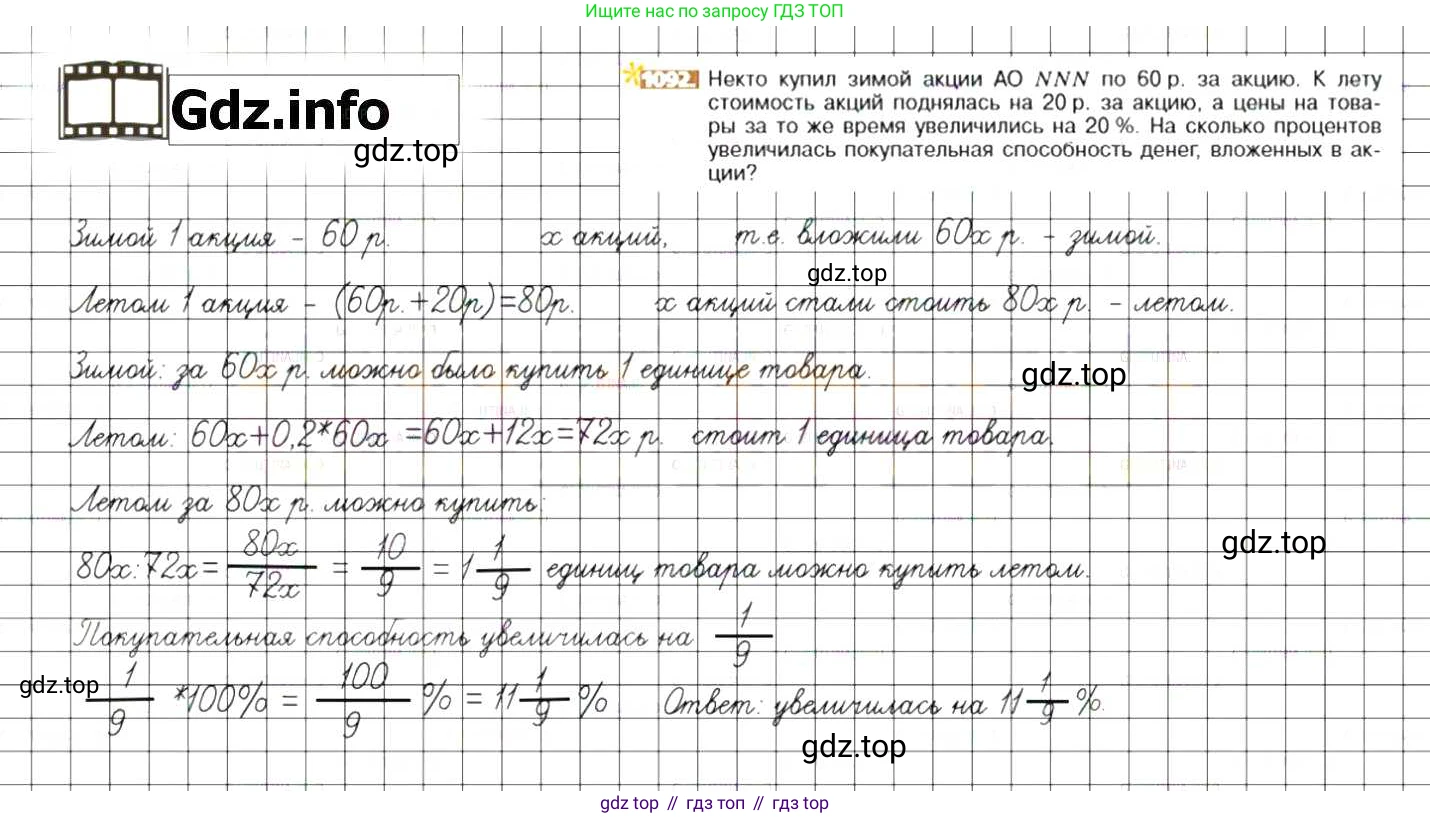 Ищите нас по запросу ГДЗ ТОП
Gdz.info
gdz.top
1092. Некто купил зимой акции АО NNN по 60 р. за акцию. К лету
стоимость акций поднялась на 20 р. за акцию, а цены на това-
ры за то же время увеличились на 20 %. На сколько процентов
увеличилась покупательная способность денег, вложенных в ак-
ции?
Зимой 1 акция – 60 р. х акций, т.е. вложили 60х р. - зимой.
gdz.top
Летом 1 акция – (60р.+20р)=80р. х акций стали стоить 80х р. - летом.
Зимой: за 60х р. можно было купить 1 единице товара.
gdz.top
Летом: 60х+0,2*60х =60х+12х=72х р. стоит 1 единица товара.
Летом за 80х р. можно купить:
80х:72х= 80х/72х = 10/9 = 1 1/9 единиц товара можно купить летом.
gdz.top
Покупательная способность увеличилась на 1/9
gdz.top
1/9 *100% = 100/9 % = 11 1/9 % Ответ: увеличилась на 11 1/9 %.
gdz.top
gdz top // гдз топ // gdz top